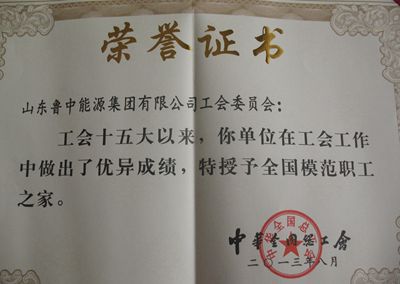 荣誉证书
山东鲁中能源集团有限公司工会委员会：
工会十五大以来，你单位在工会工作
中做出了优异成绩，特授予全国模范职工
之家。
中华全国总工会
二〇一三年八月